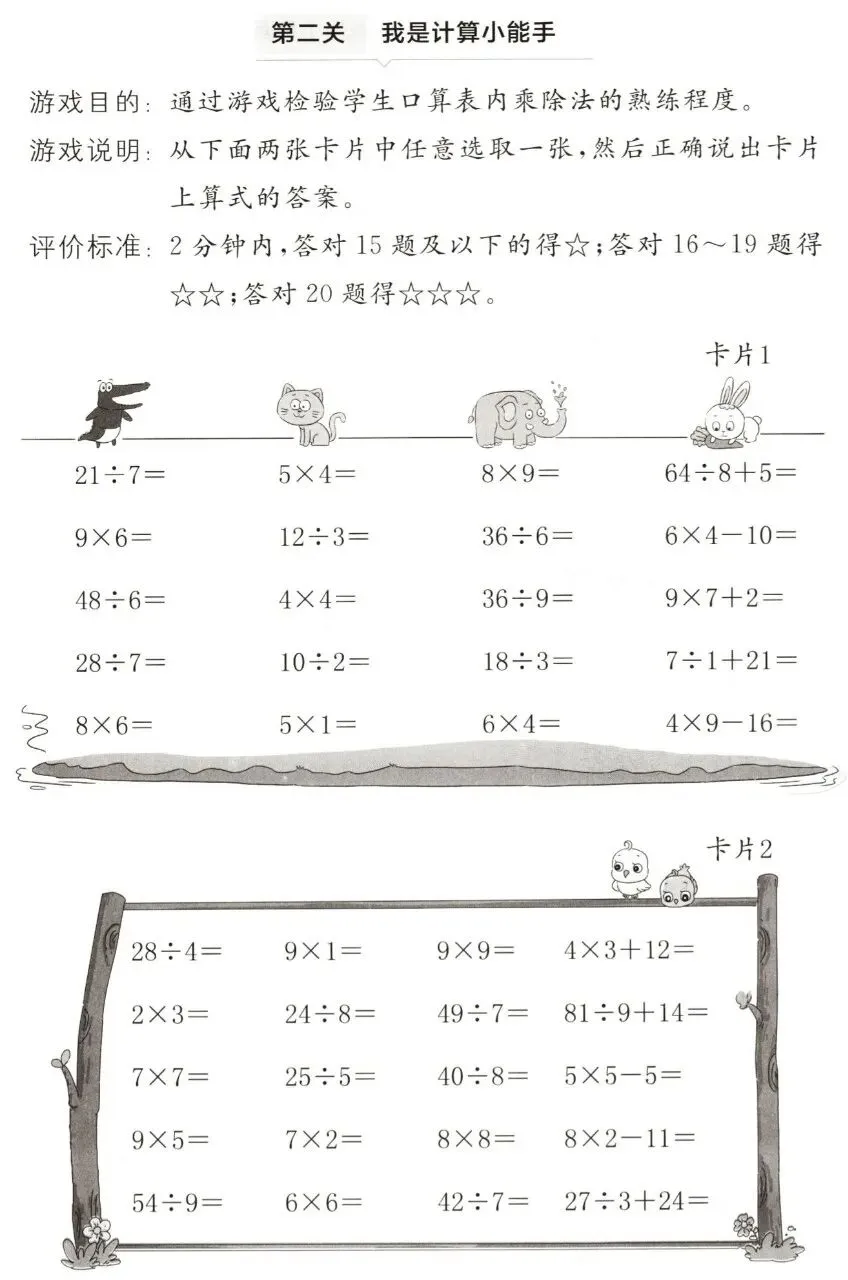 第二关 我是计算小能手
游戏目的：通过游戏检验学生口算表内乘除法的熟练程度。
游戏说明：从下面两张卡片中任意选取一张，然后正确说出卡片
上算式的答案。
评价标准：2分钟内，答对15题及以下的得☆；答对16～19题得
☆☆；答对20题得☆☆☆。
卡片1
21÷7= 5×4= 8×9= 64÷8+5=
9×6= 12÷3= 36÷6= 6×4-10=
48÷6= 4×4= 36÷9= 9×7+2=
28÷7= 10÷2= 18÷3= 7÷1+21=
8×6= 5×1= 6×4= 4×9-16=
卡片2
28÷4= 9×1= 9×9= 4×3+12=
2×3= 24÷8= 49÷7= 81÷9+14=
7×7= 25÷5= 40÷8= 5×5-5=
9×5= 7×2= 8×8= 8×2-11=
54÷9= 6×6= 42÷7= 27÷3+24=